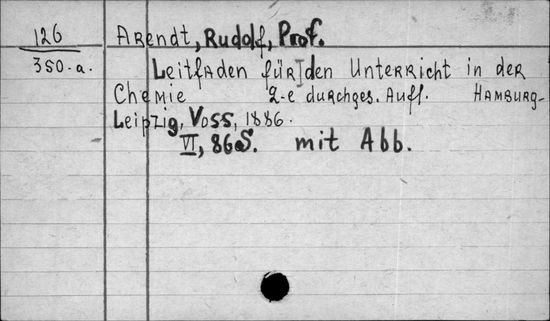 126
350-a.
Arendt, Rudolf, Prof.
Leitfaden für den Unterricht in der
Chemie 2-e durchges. Aufl. Hamburg-
Leipzig, Voss, 1886.
VI, 86 S. mit Abb.